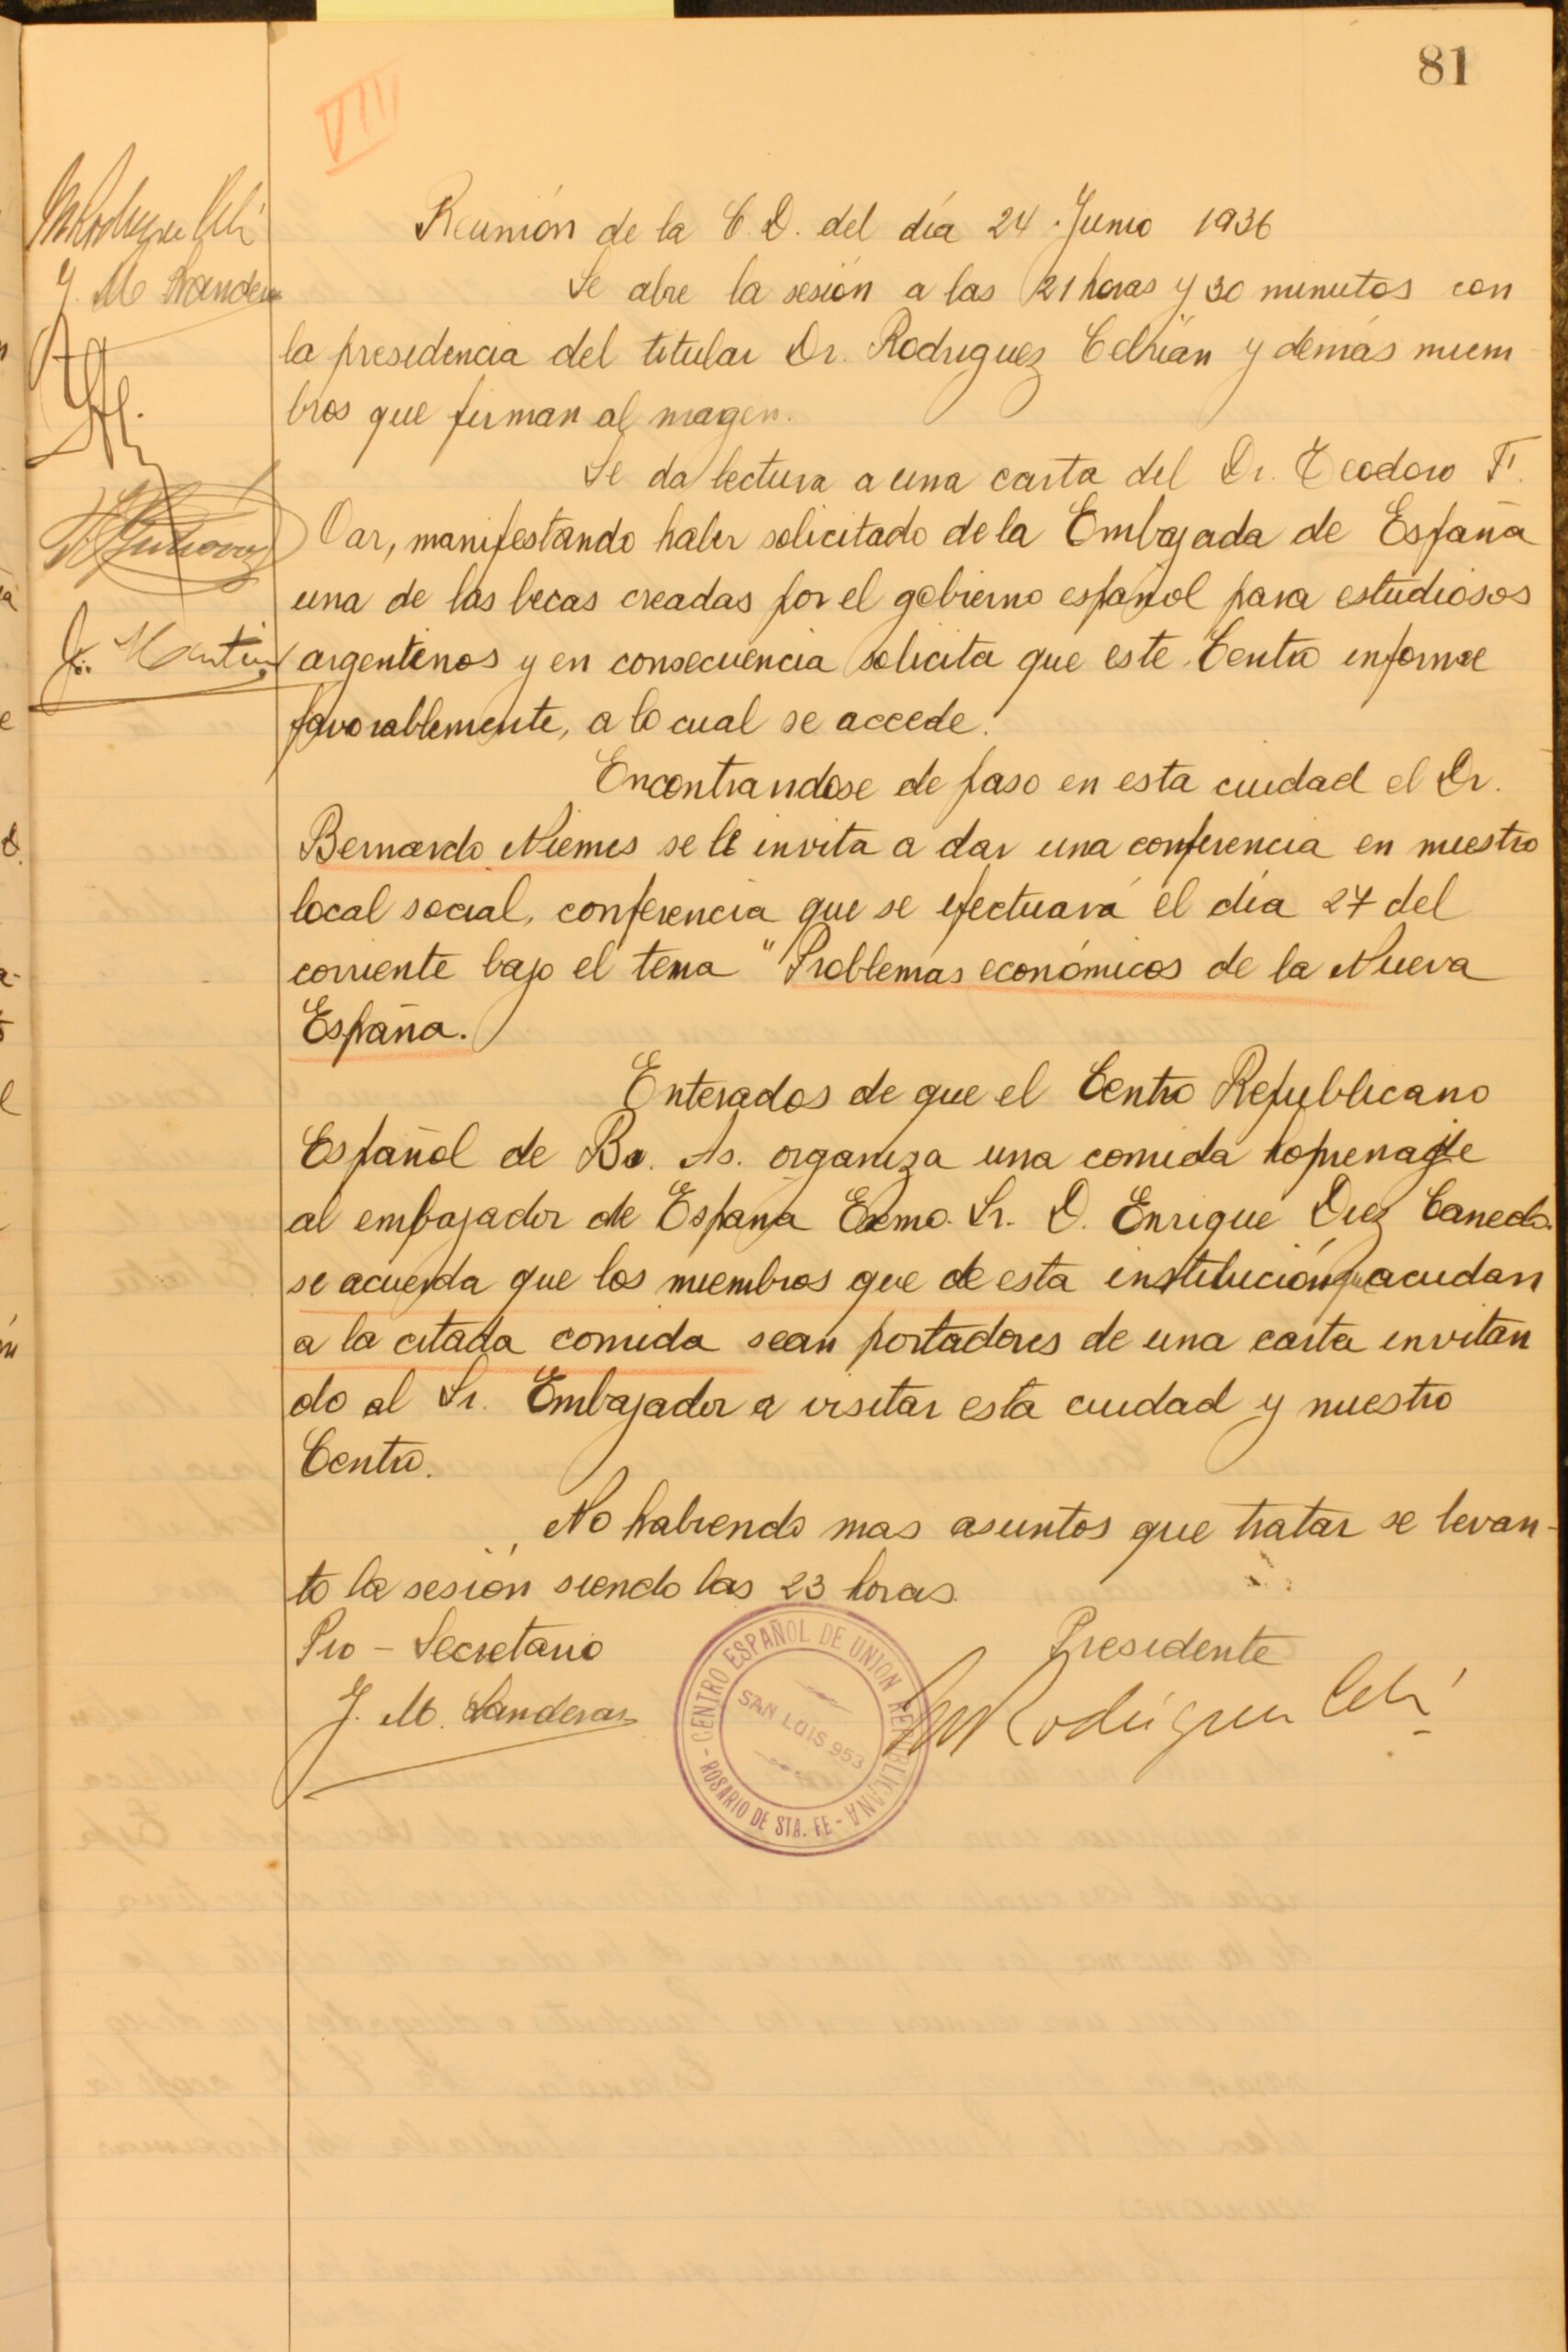 81
VIII
Reunión de la C. D. del día 24 Junio 1936
Se abre la sesión a las 21 horas y 30 minutos con
la presidencia del titular Dr. Rodriguez Cebrián y demás miem-
bros que firman al magen.
Se da lectura a una carta del Dr. Teodoro F.
Oar, manifestando haber solicitado de la Embajada de España
una de las becas creadas por el gobierno español para estudiosos
argentinos y en consecuencia solicita que este Centro informe
favorablemente, a lo cual se accede.
Encontrandose de paso en esta ciudad el Dr.
Bernardo Niemes se le invita a dar una conferencia en nuestro
local social, conferencia que se efectuará el día 27 del
corriente bajo el tema "Problemas económicos de la Nueva
España.
Enterados de que el Centro Republicano
Español de Bs. As. organiza una comida homenaje
al embajador de España Exmo. Sr. D. Enrique Diez Canedo.
se acuerda que los miembros que de esta institución que acudan
a la citada comida sean portadores de una carta invitan
do al Sr. Embajador a visitar esta ciudad y nuestro
Centro.
No habiendo mas asuntos que tratar se levan-
tó la sesión siendo las 23 horas.
Pro - Secretario
Presidente
J. M. Landeras
CENTRO ESPAÑOL DE UNION REPUBLICANA
SAN LUIS 953
- ROSARIO DE STA. FE -
J. M. Landeras
J. Martin